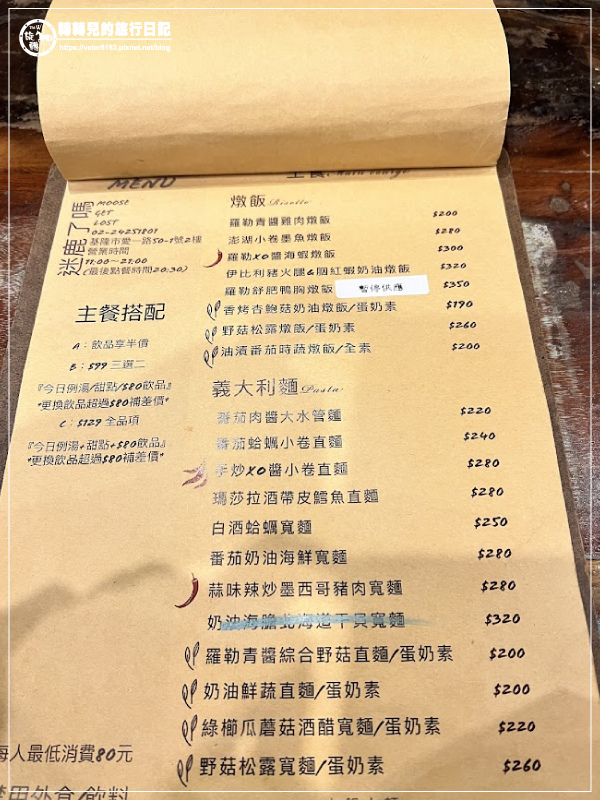 轉轉兒的旅行日記
https://veter8153.pixnet.net/blog
MENU
迷鹿了嗎
MOOSE
GET
LOST
02-24251801
基隆市愛一路50-1號2樓
營業時間
11:00~21:00
(最後點餐時間20:30)
主餐搭配
A：飲品享半價
B：$99 三選二
『今日例湯/甜點/$80飲品』
*更換飲品超過$80補差價*
C：$129 全品項
『今日例湯+甜點+$80飲品』
*更換飲品超過$80補差價*
每人最低消費80元
禁用外食/飲料
主食
燉飯 Risotto
羅勒青醬雞肉燉飯 $200
澎湖小卷墨魚燉飯 $280
羅勒XO醬海蝦燉飯 $300
伊比利豬火腿&胭紅蝦奶油燉飯 $320
羅勒舒肥鴨胸燉飯 暫停供應 $350
香烤杏鮑菇奶油燉飯/蛋奶素 $190
野菇松露燉飯/蛋奶素 $260
油漬番茄時蔬燉飯/全素 $200
義大利麵 Pasta
番茄肉醬大水管麵 $220
番茄蛤蠣小卷直麵 $240
手炒XO醬小卷直麵 $280
瑪莎拉酒帶皮鱈魚直麵 $280
白酒蛤蠣寬麵 $250
番茄奶油海鮮寬麵 $280
蒜味辣炒墨西哥豬肉寬麵 $280
奶油海膽北海道干貝寬麵 $320
羅勒青醬綜合野菇直麵/蛋奶素 $200
奶油鮮蔬直麵/蛋奶素 $200
綠櫛瓜蘑菇酒醋寬麵/蛋奶素 $220
野菇松露寬麵/蛋奶素 $260